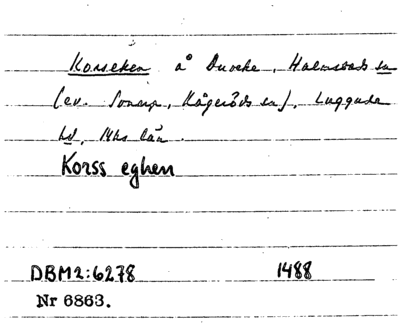 Korseken å Duveke, Halmstads sn
(ev. Svenarp, Kågeröds sn), Luggude
hd, Mhs län.
Korss eghen
DBM2:6278 1488
Nr 6863.